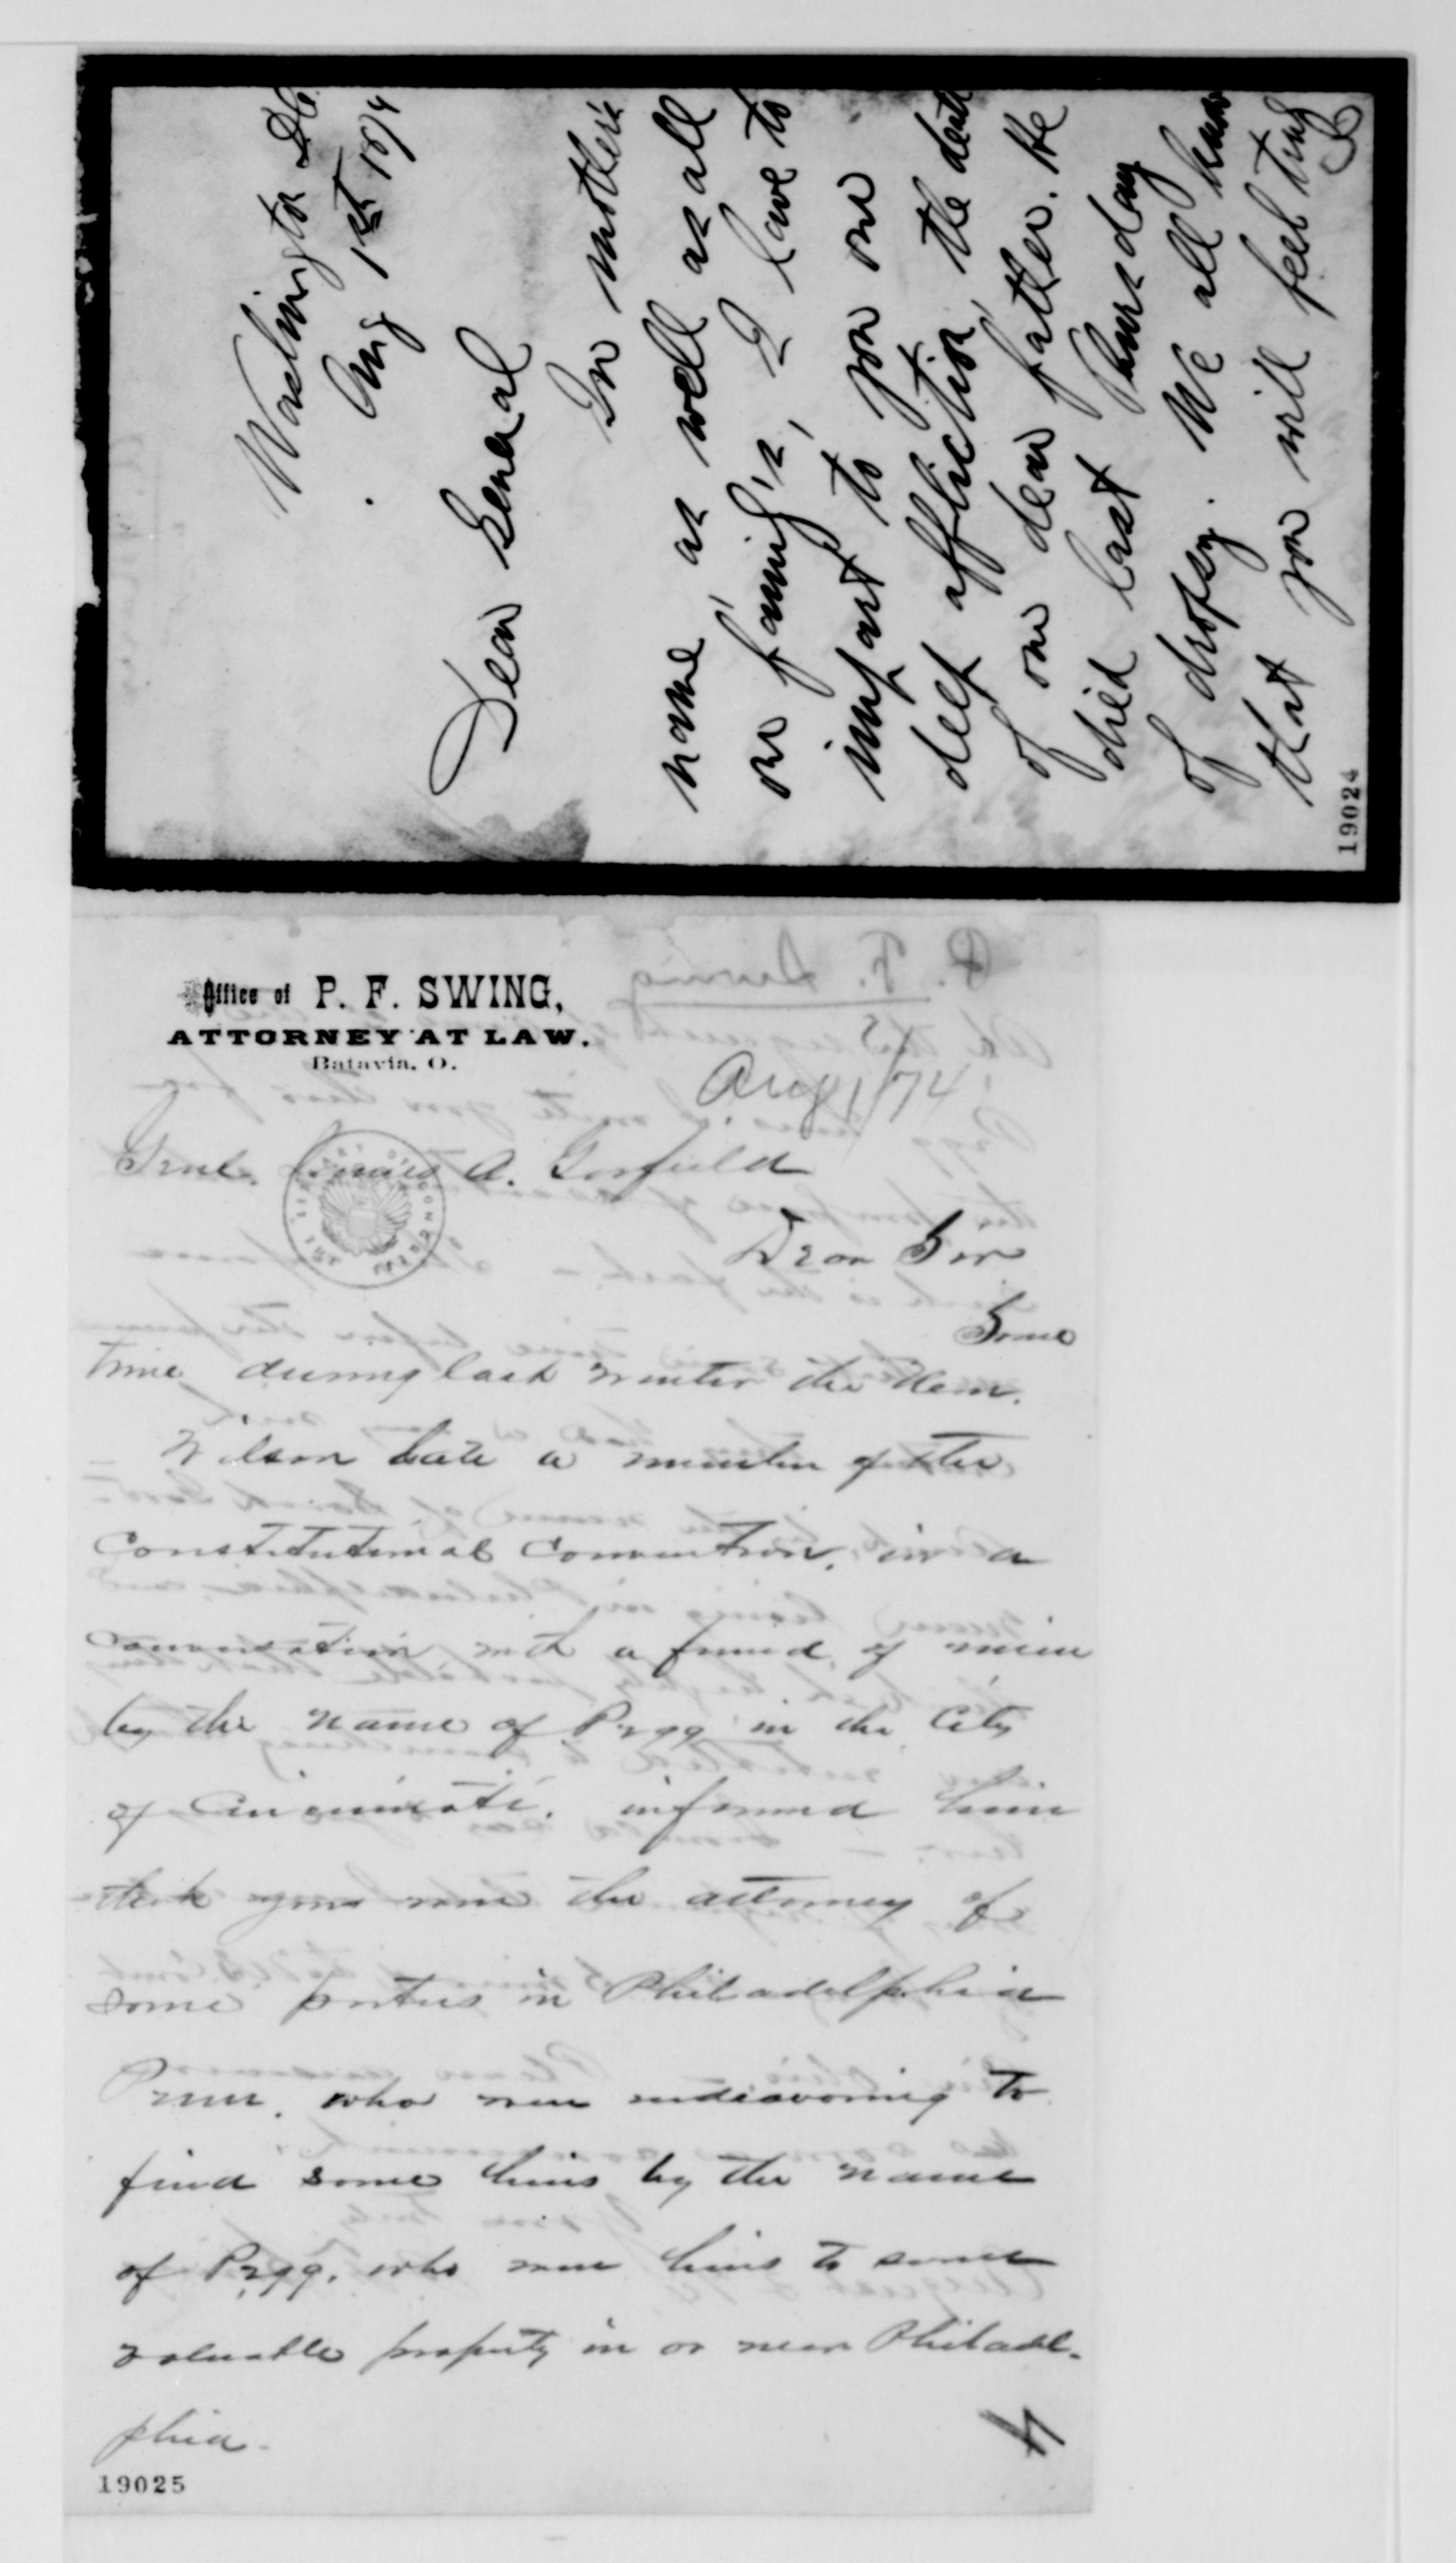 Washington DC
Aug 1st 1874
Dear General
In mother's
name, as well as all
our family's, I have to
impart to you our
deep affliction, the death
of our dear father. He
died last Thursday
of dropsy. We all know
that you will feel truly
19024
Office of P. F. SWING,
ATTORNEY AT LAW.
Batavia, O.
Aug 1/74
Genl. James A. Garfield
Dear Sir
Some
time during last winter the Hon.
Wilson late a member of the
Constitutional Convention, in a
conversation with a friend of mine
by the name of Pegg in the City
of Cincinnati. informed him
that you were the attorney of
some parties in Philadelphia
Penn. who were endeavoring to
find some heirs by the name
of Pegg. who were heirs to some
valuable property in or near Philadel-
phia.
19025